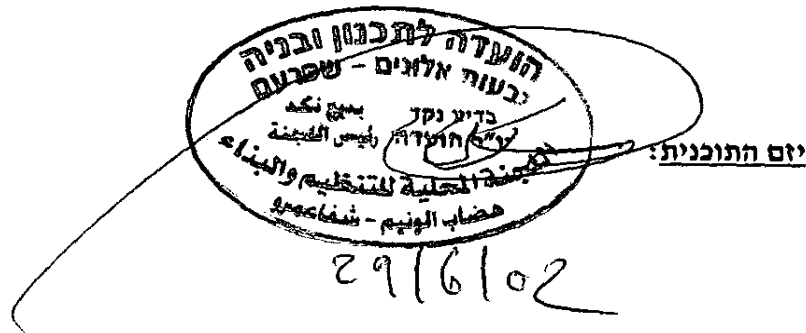 הועדה לתכנון ובניה
גבעות אלונים - שפרעם
בדיע נקד بديع نكد
יו"ר הועדה رئيس اللجنة
اللجنة المحلية للتنظيم والبناء
هضاب الونيم - شفاعمرو
יזם התוכנית:
29/6/02